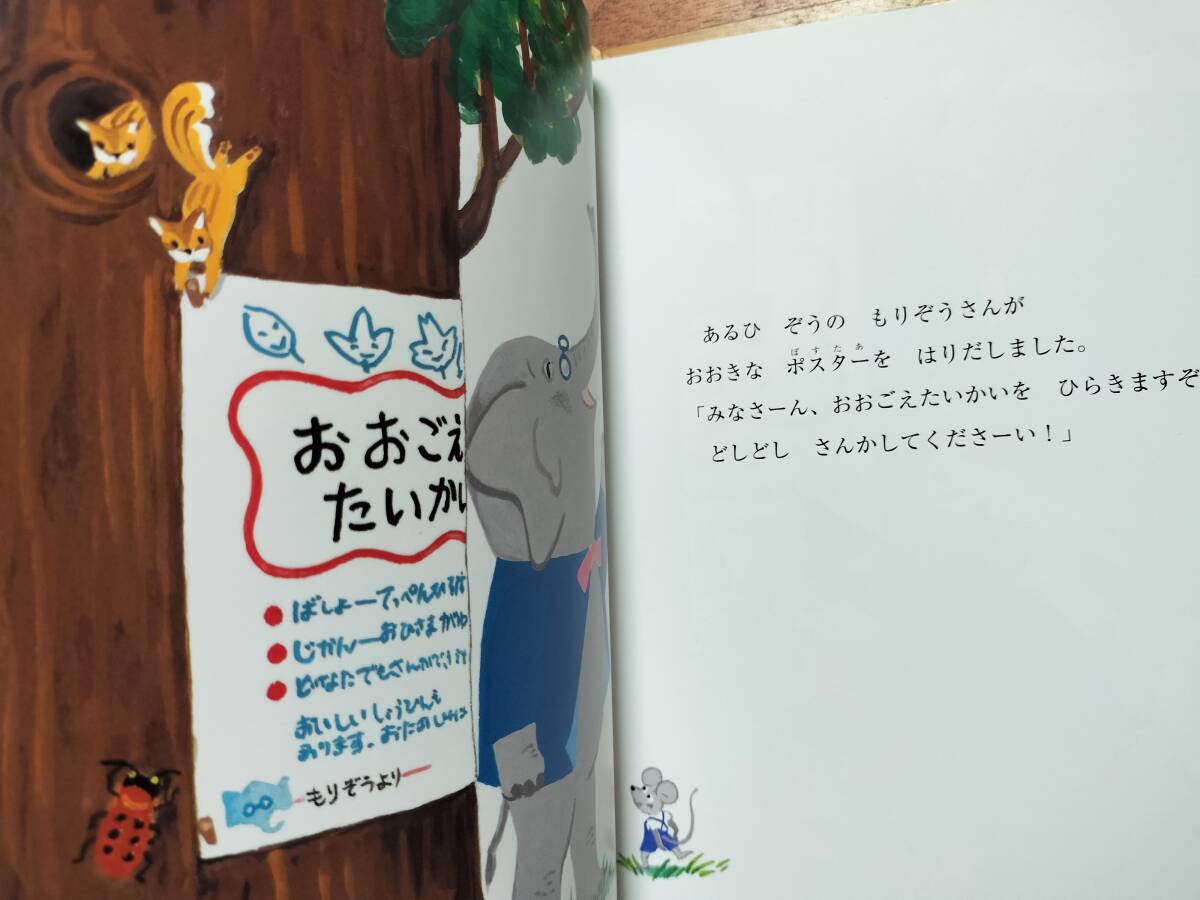 おおごえ
たいかい
ばしょーてっぺんひろば
じかんーおひさまが
どなたでもさんかできます
おいしいしょうひんも
あります。おたのしみ
もりぞうより
あるひ　ぞうの　もりぞうさんが
ぽすたあ
おおきな　ポスターを　はりだしました。
「みなさーん、おおごえたいかいを　ひらきますぞ
どしどし　さんかしてくださーい！」